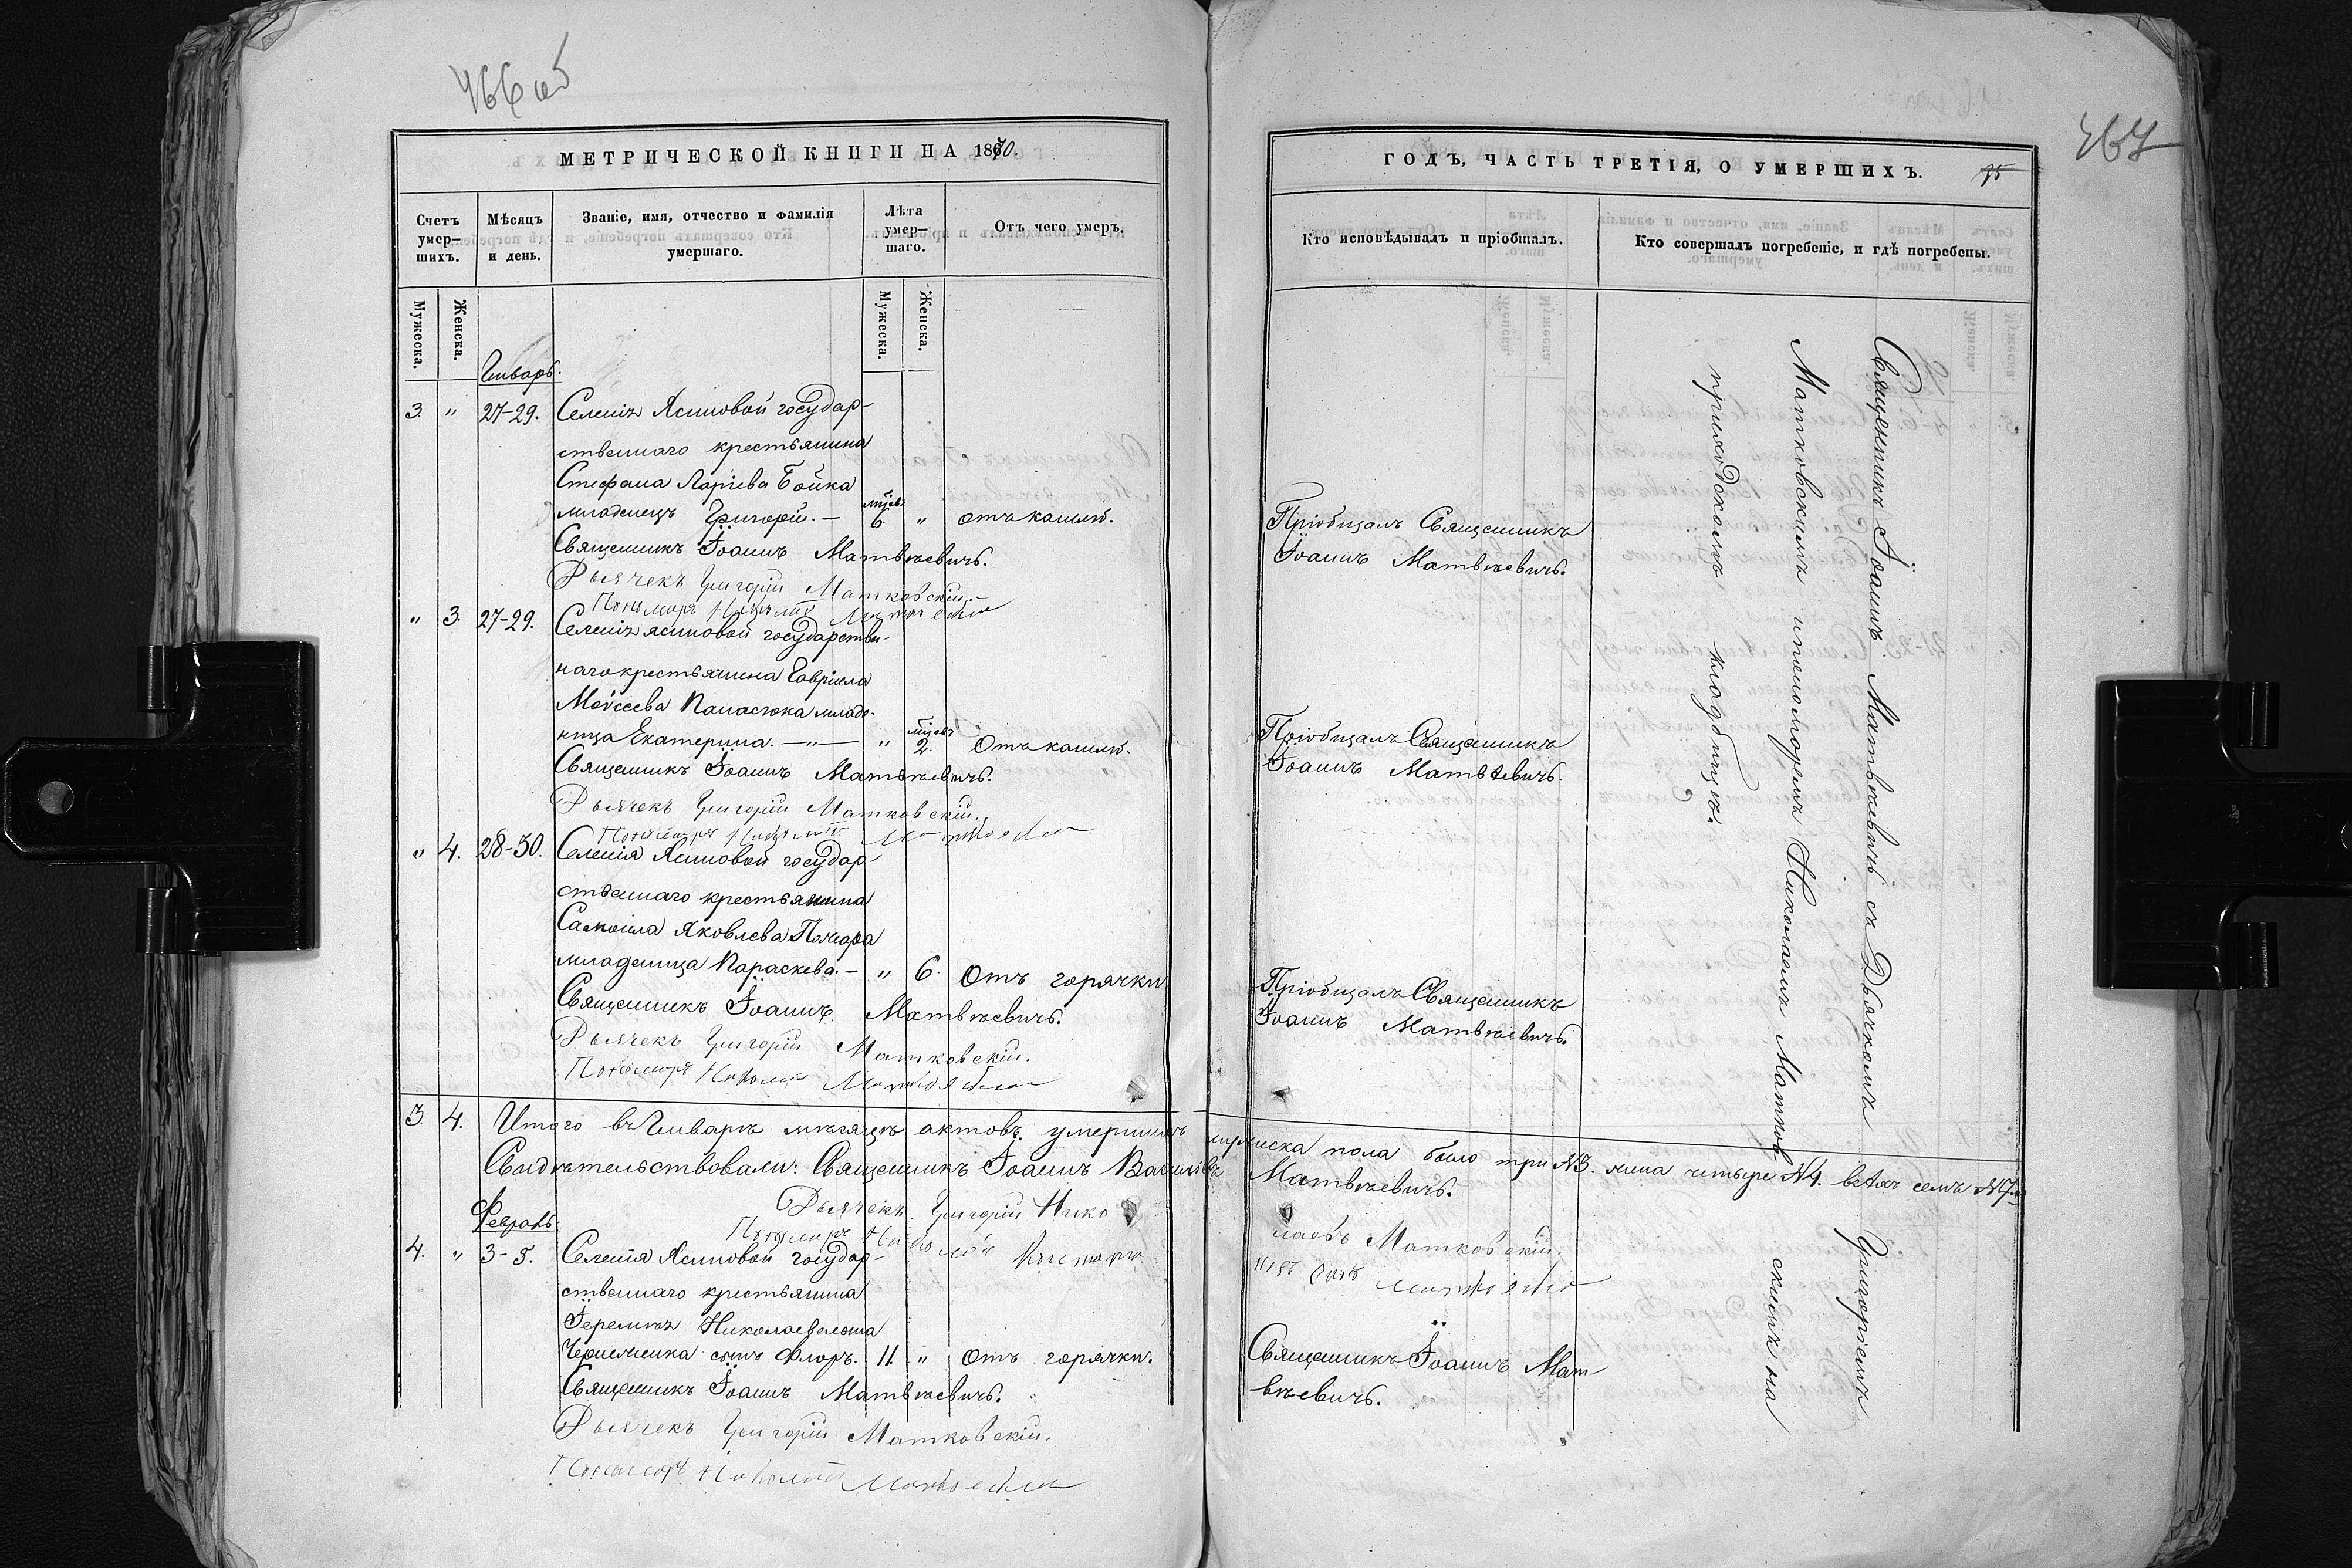 466 об
МЕТРИЧЕСКОЙ КНИГИ НА 1870.
Счетъ умер-шихъ.
Мѣсяцъ и день.
Званіе, имя, отчество и фамилія умершаго.
Лѣта умер-шаго.
Отъ чего умеръ.
Мужеска.
Женска.
Мужеска.
Женска.
Январь.
3. " 27-29. Селенія Ясиновой государ-
ственнаго крестьянина
Стефана Ларіева Бойка
младенецъ Григорій. — 6. " отъ кашлѣ.
Священникъ Іоаннъ Матвѣевичъ.
Дьячекъ Григорій Матковскій.
Пономарь Николай
" 3. 27-29. Селенія Ясиновой государствен-
наго крестьянина Гавріила
Моѵсеева Панасюка младе-
ница Екатерина. — " — " 2. Отъ кашлѣ.
Священникъ Іоаннъ Матвѣевичъ.
Дьячекъ Григорій Матковскій.
Пономарь Николай
" 4. 28-30. Селенія Ясиновой государ-
ственнаго крестьянина
Самоила Яковлева
младеница Параскева. — " 6. Отъ горячки
Священникъ Іоаннъ Матвѣевичъ.
Дьячекъ Григорій Матковскій.
Пономарь Николай
3. 4. Итого въ Январѣ мѣсяцѣ актовъ умершихъ
Свидѣтельствовали: Священникъ Іоаннъ
Дьячекъ Григорій Нико
Пономарь
Февраль.
4. " 3-5. Селенія Ясиновой государ-
ственнаго крестьянина
Іереміи Николаева
сынъ Флоръ. 11. " Отъ горячки.
Священникъ Іоаннъ Матвѣевичъ.
Дьячекъ Григорій Матковскій.
Пономарь Николай
467
ГОДЪ, ЧАСТЬ ТРЕТІЯ, О УМЕРШИХЪ.
Кто исповѣдывалъ и пріобщалъ.
Кто совершалъ погребеніе, и гдѣ погребены.
Пріобщалъ Священникъ
Іоаннъ Матвѣевичъ.
Пріобщалъ Священникъ
Іоаннъ Матвѣевичъ.
Пріобщалъ Священникъ
Іоаннъ Матвѣевичъ.
пола было три №3. жена четыре №4. всѣхъ семь №7
Матвѣевичъ.
лаевъ Матковскій.
Священникъ Іоаннъ Мат
вѣевичъ.
Священникъ Іоаннъ Матвѣевичъ съ Дьячкомъ Григоріемъ
Матковскимъ и пономоремъ Николаемъ Матков скимъ на
приходскомъ кладбищѣ.